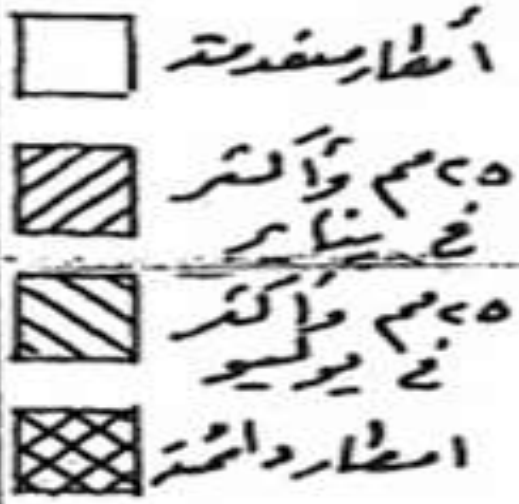 أمطار منعدمة
٢٥ مم وأكثر
في يناير
٢٥ مم وأكثر
في يوليو
امطار دائمة